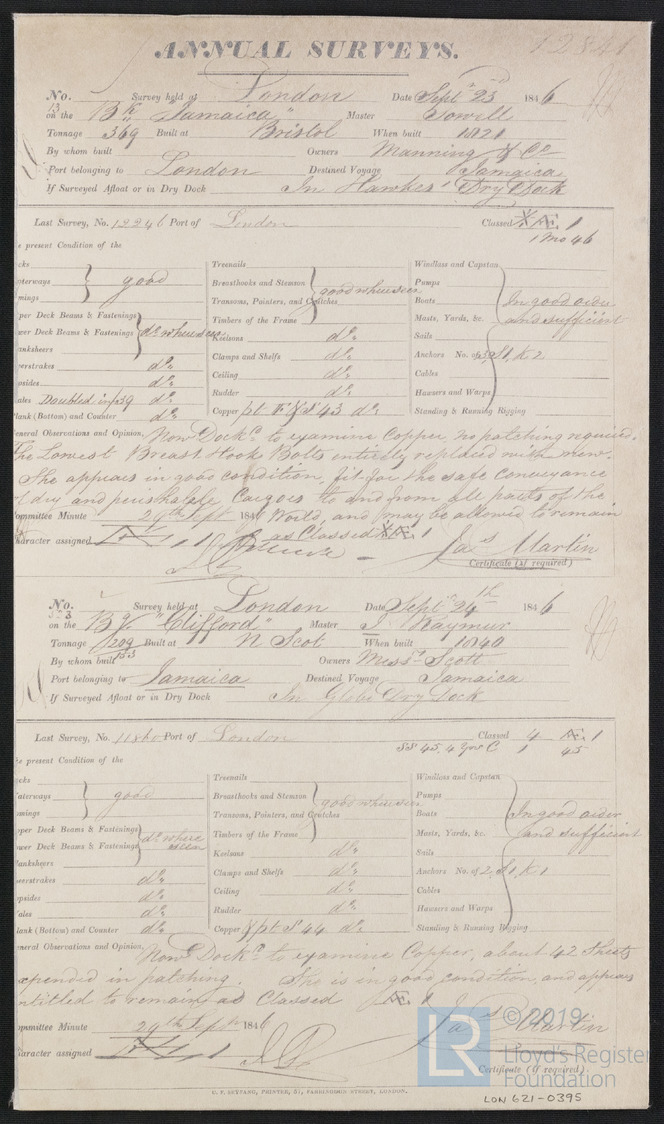 12841
ANNUAL SURVEYS.
No. Survey held at London Date Sept 23 1846
13
on the Bk "Jamaica" Master Towill
Tonnage 369 Built at Bristol When built 1821
By whom built Owners Manning & Co
Port belonging to London Destined Voyage Jamaica
If Surveyed Afloat or in Dry Dock In Hawkes' Dry Dock
Last Survey, No. 12246 Port of London Classed Æ 1
1 Mo 46
present Condition of the
Treenails Windlass and Capstan
good Breasthooks and Stemson good where seen Pumps
Transoms, Pointers, and Crutches Boats In good order
per Deck Beams & Fastenings Timbers of the Frame Masts, Yards, &c. and sufficient
er Deck Beams & Fastenings do where seen Keelsons do Sails
anksheers Clamps and Shelfs do Anchors No. of 3, S1, K2
erstrakes do Ceiling do Cables
psides do Rudder do Hawsers and Warps
ales Doubled in /39 do
lank (Bottom) and Counter do Copper pt F & S 43 do Standing & Running Rigging
eneral Observations and Opinion, Now Dockd to examine Copper, no patching required.
The Lowest Breast Hook Bolts entirely replaced with new.
She appears in good condition, fit for the safe conveyance
dry and perishable Cargoes to and from all parts of the
ommittee Minute 29th Sept 1846 World, and may be allowed to remain
as Classed Æ 1
haracter assigned Jas Martin
Certificate (if required)
No. Survey held at London Date Sept 24th 1846
on the Bg "Clifford" Master J Raymur
Tonnage 209 Built at N Scot When built 1840
By whom built Owners Messrs Scott
Port belonging to Jamaica Destined Voyage Jamaica
If Surveyed Afloat or in Dry Dock In Globe Dry Dock
Last Survey, No. 11860 Port of London Classed 4 Æ 1
SS 45, 4 yrs C 1 45
present Condition of the
cks Treenails Windlass and Capstan
aterways good Breasthooks and Stemson good where seen Pumps
mings Transoms, Pointers, and Crutches Boats In good order
pper Deck Beams & Fastenings do where seen Timbers of the Frame Masts, Yards, &c. and sufficient
wer Deck Beams & Fastenings Keelsons do Sails
anksheers Clamps and Shelfs do Anchors No. of 2, S1, K1
eerstrakes do Ceiling do Cables
opsides do
ales do Rudder do Hawsers and Warps
lank (Bottom) and Counter do Copper pt S 44 do Standing & Running Rigging
eneral Observations and Opinion, Now Dockd to examine Copper, about 42 Sheets
expended in patching. She is in good condition, and appears
entitled to remain as Classed Æ 1
ommittee Minute 29th Sept 1846 Jas Martin
haracter assigned
Certificate (if required).
LR © 2019
Lloyd's Register
Foundation
LON 621-0395